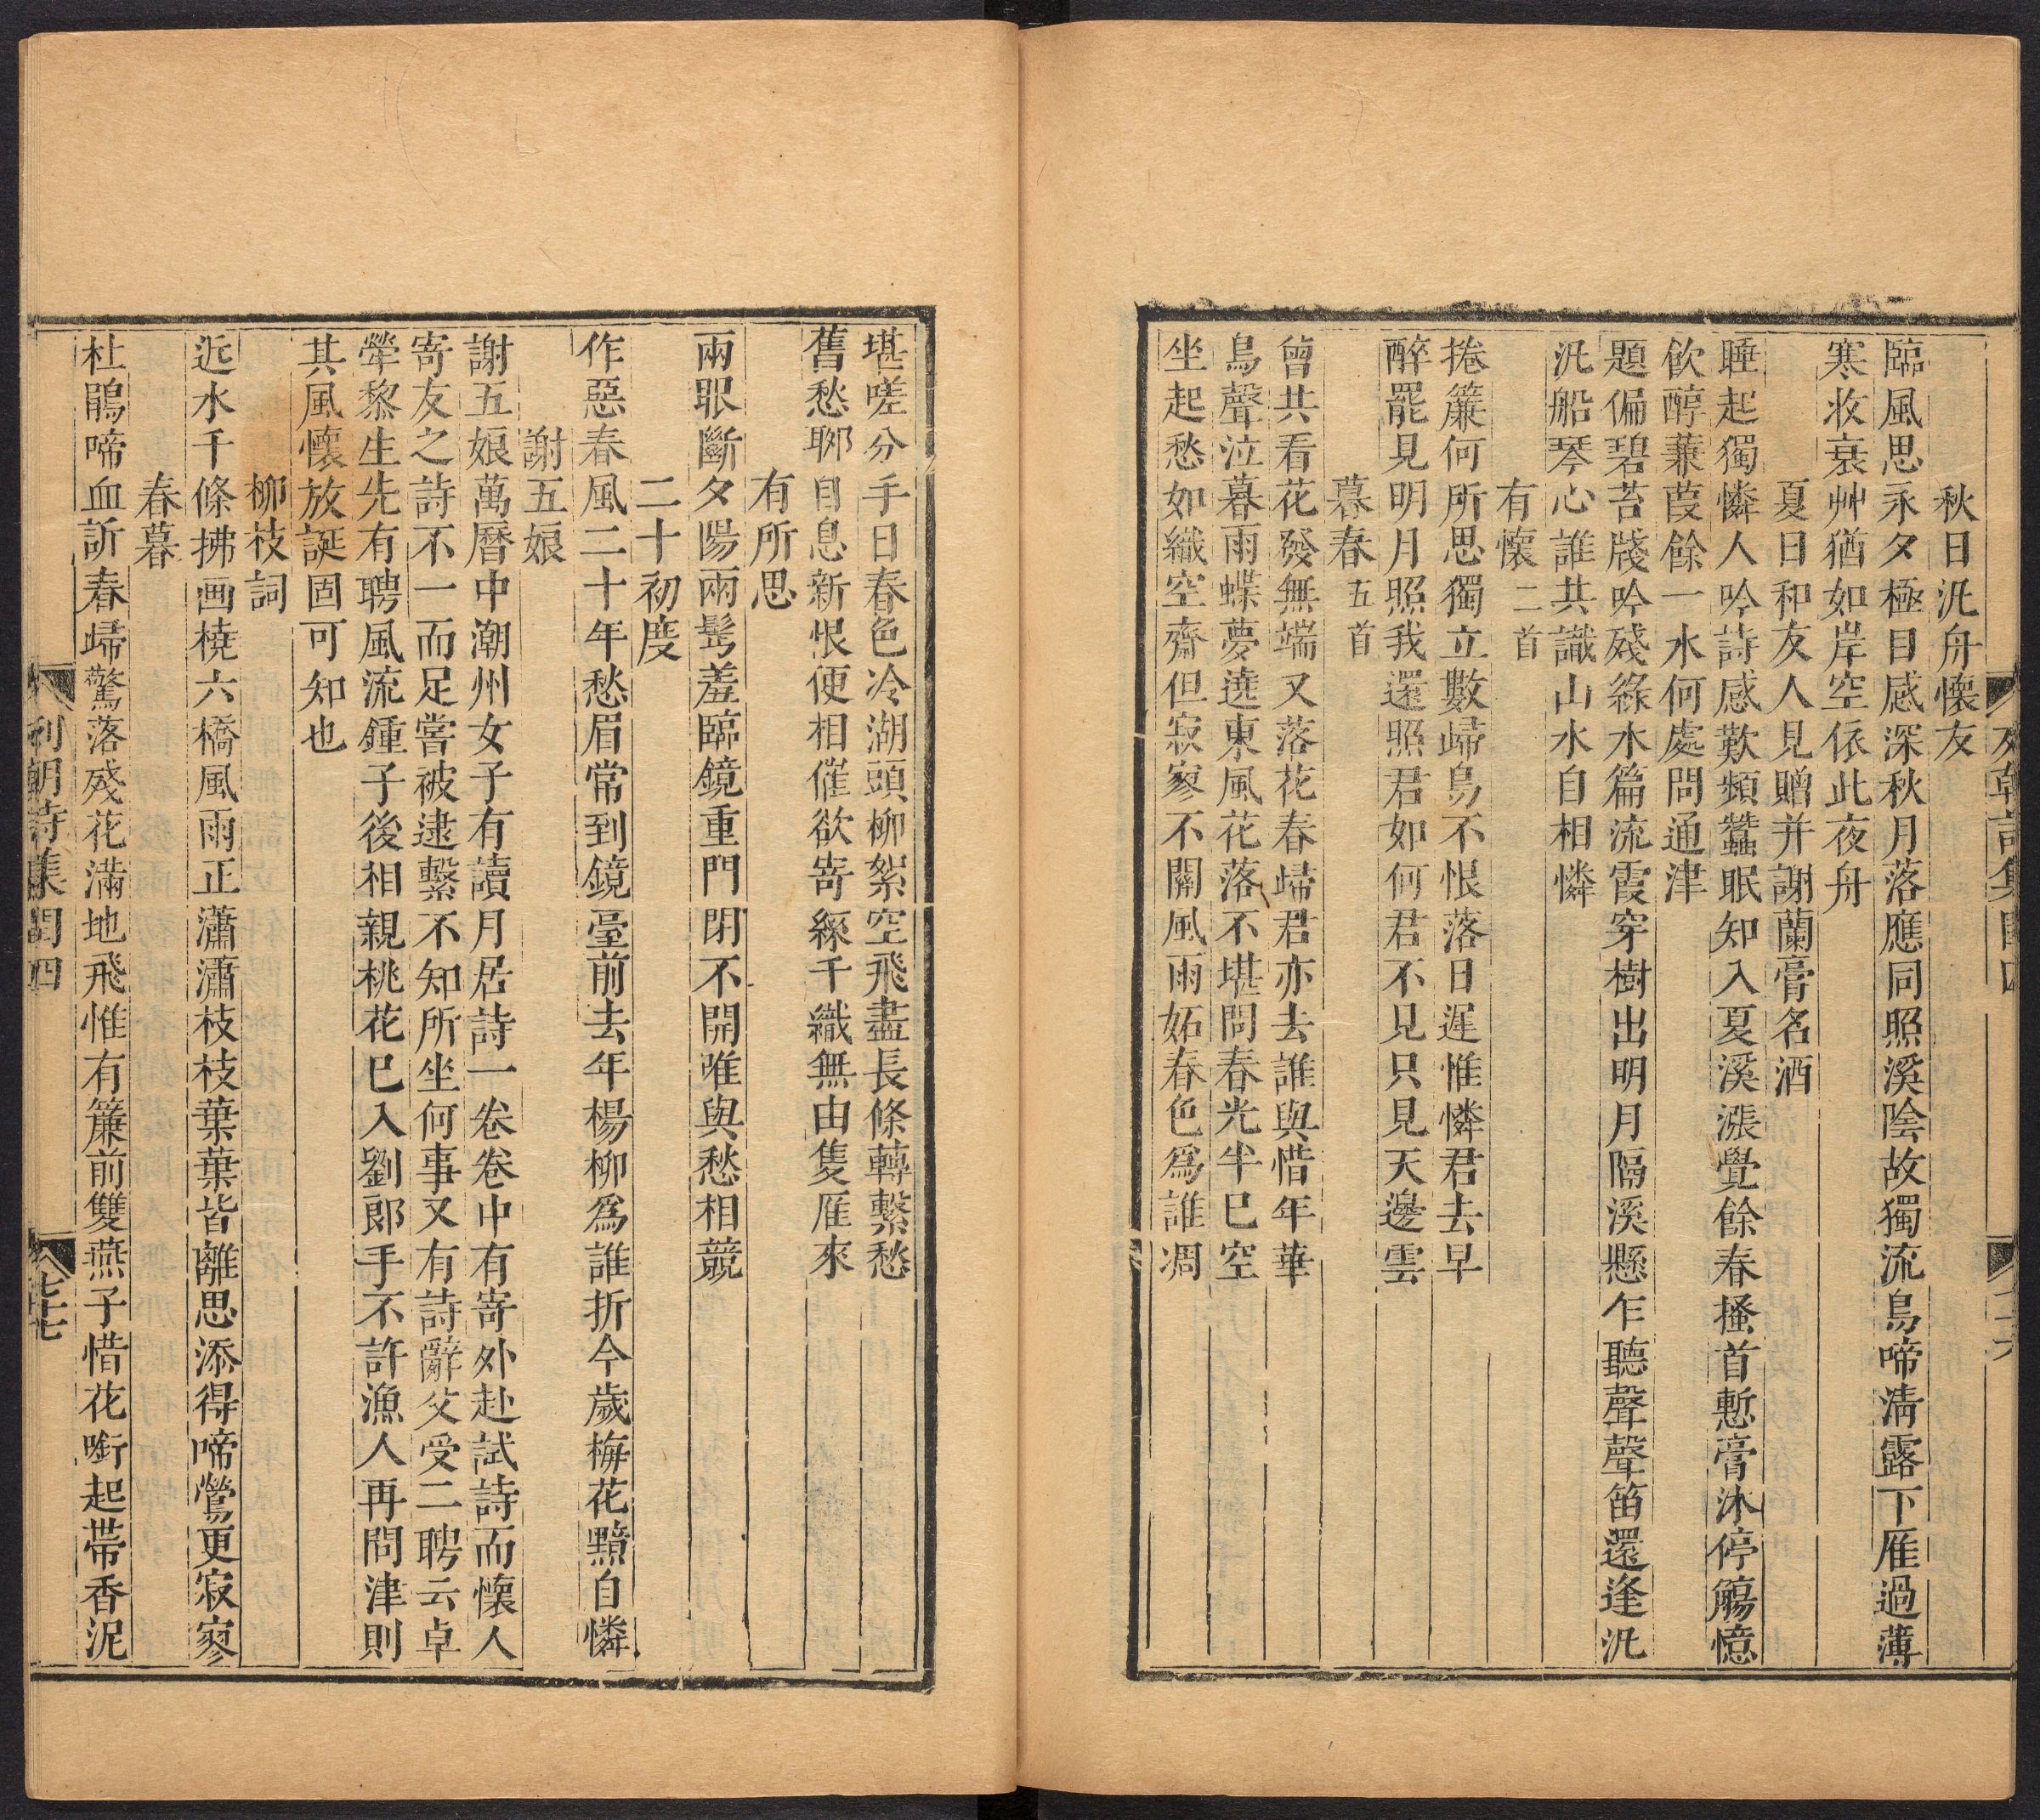 秋日汎舟懷友
臨風思永夕極目感深秋月落應同照溪陰故獨流鳥啼淸露下雁過薄
寒收衰艸猶如岸空依此夜舟
夏日和友人見贈并謝蘭膏名酒
睡起獨憐人吟詩感歎頻蠶眠知入夏溪漲覺餘春搔首慙膏沐停觴憶
飮醇蒹葭餘一水何處問通津
題偏碧苔牋吟殘綠水篇流霞穿樹出明月隔溪懸乍聽聲聲笛還逢汎
汎船琴心誰共識山水自相憐
有懷二首
捲簾何所思獨立數歸鳥不恨落日遲惟憐君去早
醉罷見明月照我還照君如何君不見只見天邊雲
暮春五首
曾共看花發無端又落花春歸君亦去誰與惜年華
鳥聲泣暮雨蝶夢遶東風花落不堪問春光半已空
坐起愁如織空齋但寂寥不關風雨妬春色爲誰凋
堪嗟分手日春色冷湖頭柳絮空飛盡長條轉繫愁
舊愁聊自息新恨便相催欲寄綵千織無由隻雁來
有所思
兩眼斷夕陽兩髩羞臨鏡重門閉不開唯與愁相競
二十初度
作惡春風二十年愁眉常到鏡臺前去年楊柳爲誰折今歲梅花黯自憐
謝五娘
謝五娘萬曆中潮州女子有讀月居詩一卷卷中有寄外赴試詩而懷人
寄友之詩不一而足嘗被逮繫不知所坐何事又有詩辭父受二聘云卓
犖黎生先有聘風流鍾子後相親桃花已入劉郎手不許漁人再問津則
其風懷放誕固可知也
柳枝詞
近水千條拂画橈六橋風雨正瀟瀟枝枝葉葉皆離思添得啼鶯更寂寥
春暮
杜鵑啼血訴春歸驚落殘花滿地飛惟有簾前雙燕子惜花啣起帶香泥
列朝詩集閏四
七十七